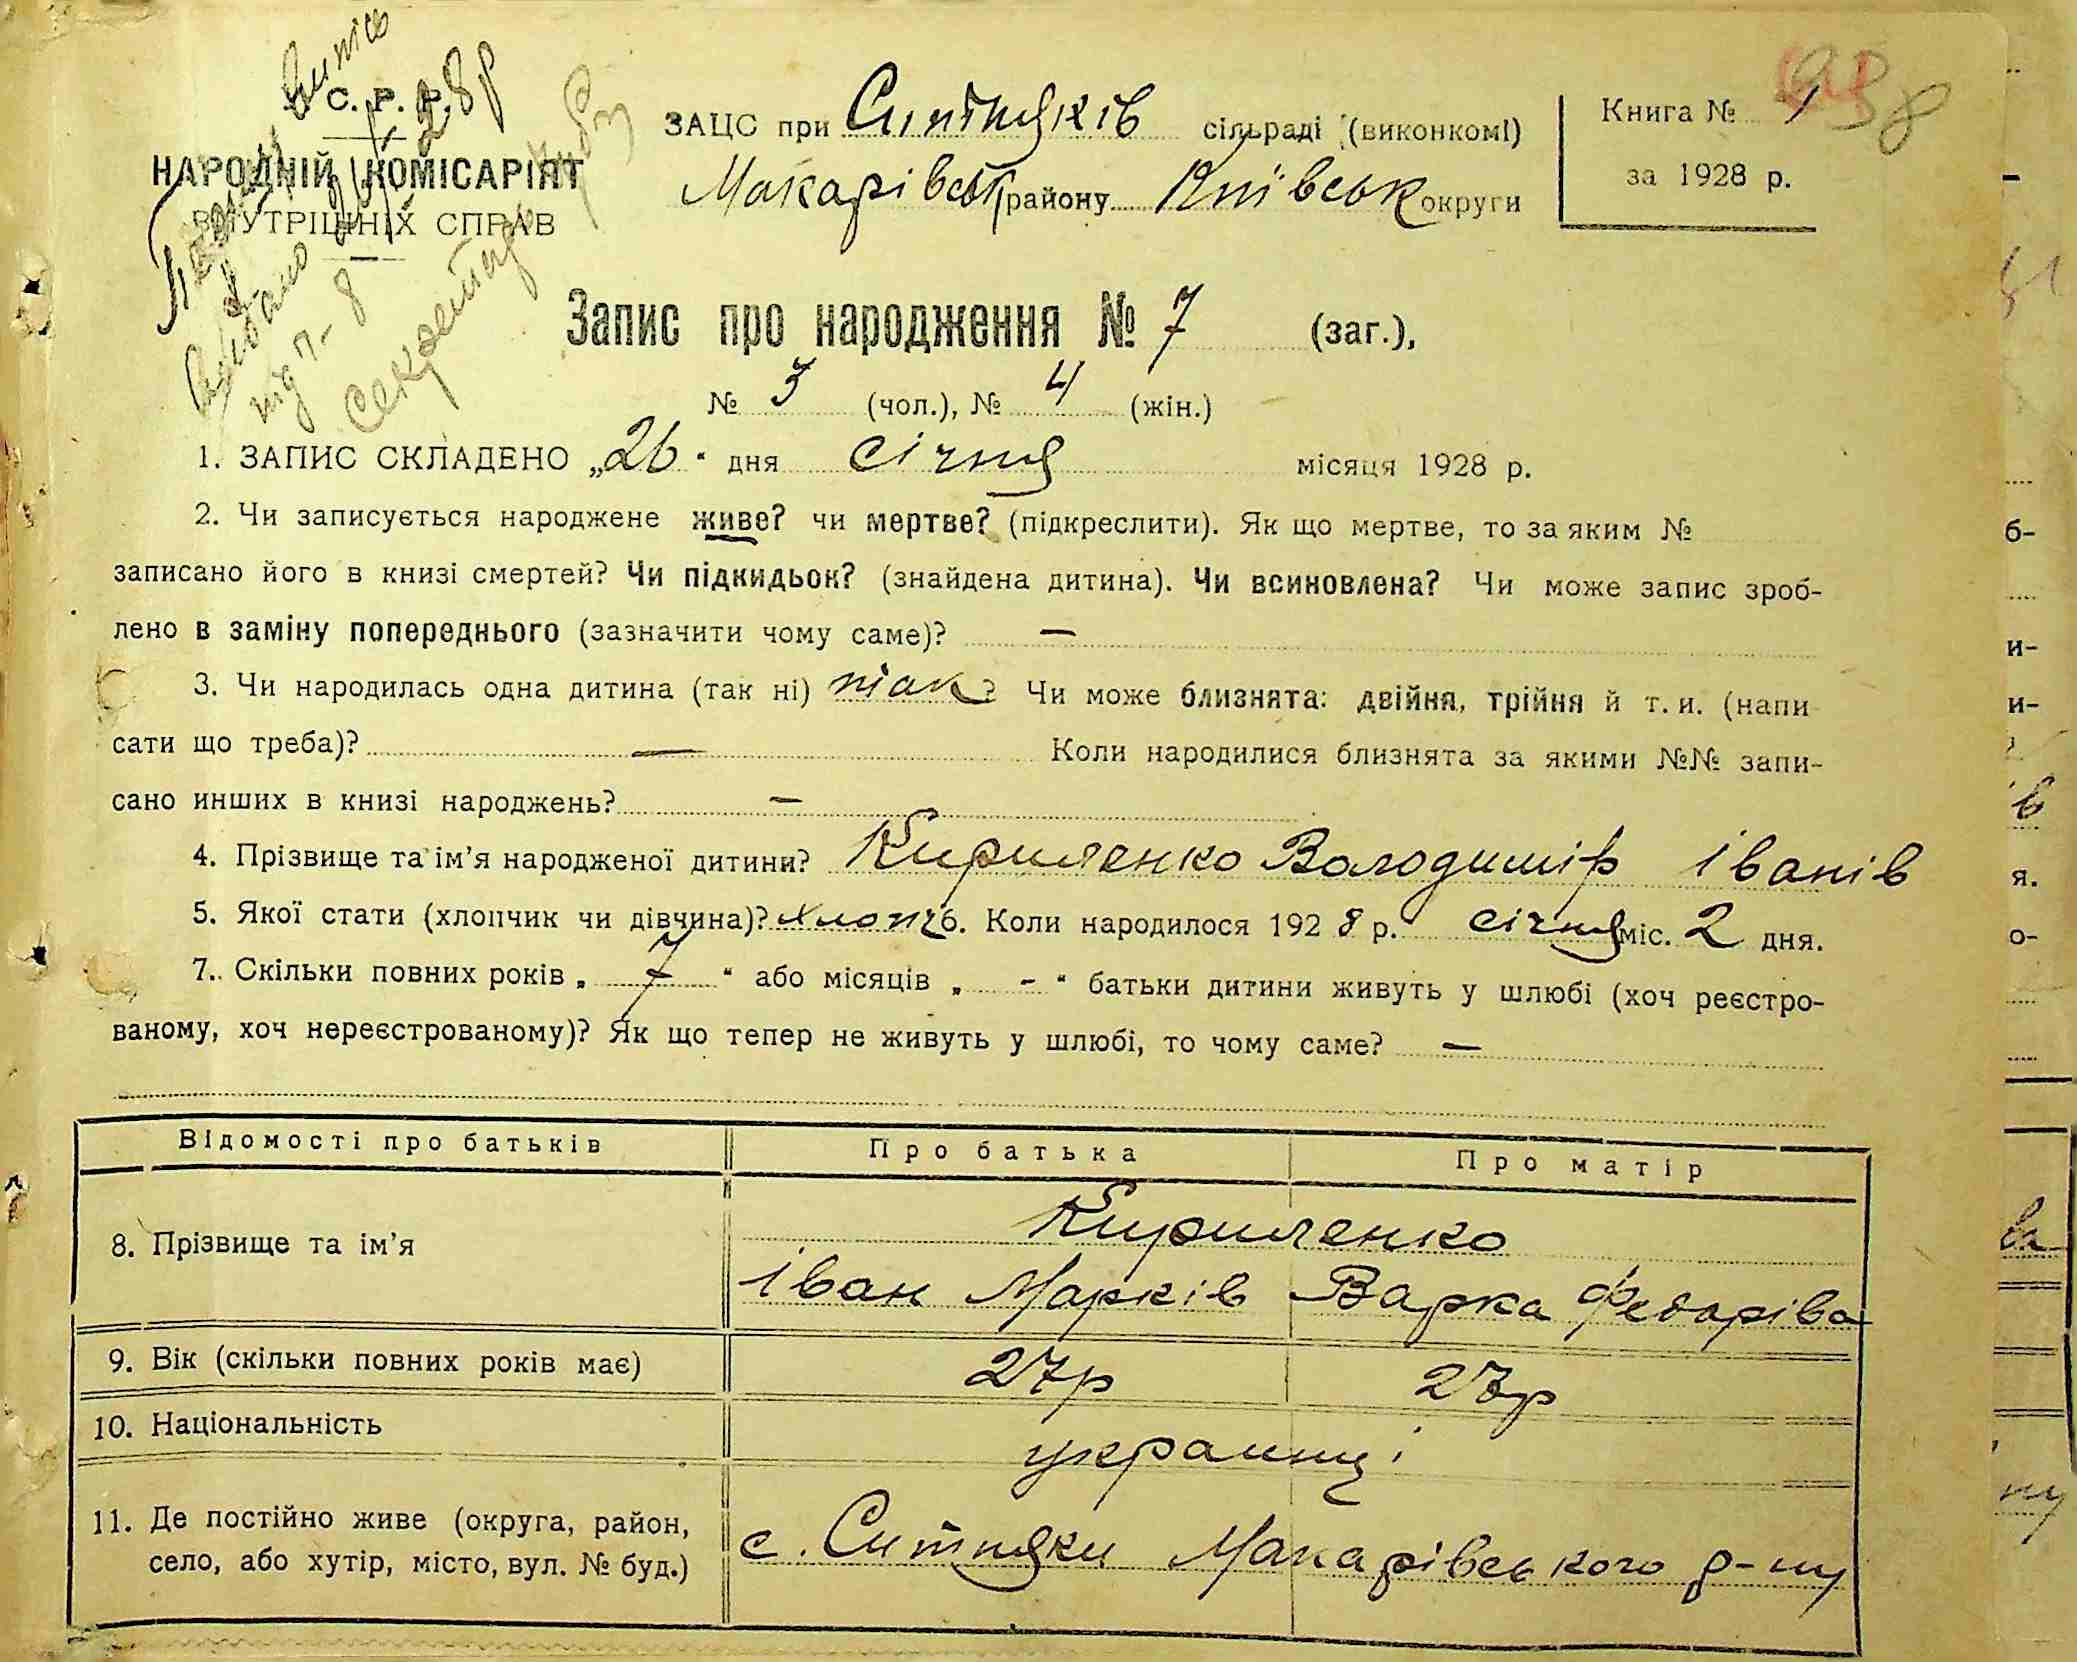 С. Р. Р.
НАРОДНІЙ КОМІСАРІЯТ
ВНУТРІШНІХ СПРАВ
Випис
28р
видано
під п-8
Секретар
ЗАЦС при Ситняків сільраді (виконкомі)
Макарівськ району Київськ округи
Книга № 1
за 1928 р.
Запис про народження № 7 (заг.),
№ 3 (чол.), № 4 (жін.)
1. ЗАПИС СКЛАДЕНО „26“ дня січня місяця 1928 р.
2. Чи записується народжене живе? чи мертве? (підкреслити). Як що мертве, то за яким №
записано його в книзі смертей? Чи підкидьок? (знайдена дитина). Чи всиновлена? Чи може запис зроб-
лено в заміну попереднього (зазначити чому саме)? —
3. Чи народилась одна дитина (так ні) так? Чи може близнята: двійня, трійня й т. и. (напи
сати що треба)? — Коли народилися близнята за якими №№ запи-
сано инших в книзі народжень? —
4. Прізвище та ім’я народженої дитини? Кириленко Володимір Іванів
5. Якої стати (хлопчик чи дівчина)? хлопч 6. Коли народилося 1928 р. січня міс. 2 дня.
7. Скільки повних років „ 7 “ або місяців „ - “ батьки дитини живуть у шлюбі (хоч реєстро-
ваному, хоч нереєстрованому)? Як що тепер не живуть у шлюбі, то чому саме? —
Відомості про батьків Про батька Про матір
8. Прізвище та ім’я Кириленко
Іван Марків Варка Федоріва
9. Вік (скільки повних років має) 27р 27р
10. Національність українці
11. Де постійно живе (округа, район,
село, або хутір, місто, вул. № буд.) с. Ситняки Макарівського р-ну